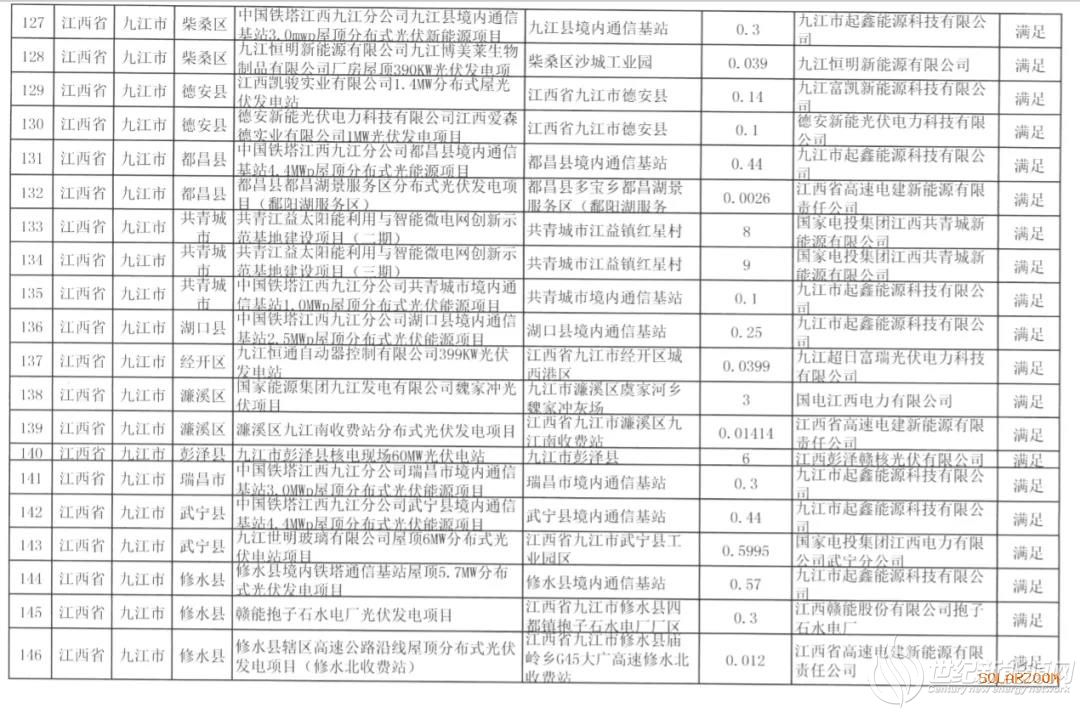 127 江西省 九江市 柴桑区 中国铁塔江西九江分公司九江县境内通信 九江县境内通信基站 0.3 九江市起鑫能源科技有限公 满足
基站3.0mwp屋顶分布式光伏新能源项目 司
128 江西省 九江市 柴桑区 九江恒明新能源有限公司九江博美莱生物 柴桑区沙城工业园 0.039 九江恒明新能源有限公司 满足
制品有限公司厂房屋顶390KW光伏发电项
129 江西省 九江市 德安县 江西凯骏实业有限公司1.4MW分布式屋光 江西省九江市德安县 0.14 九江富凯新能源科技有限公 满足
伏发电站 司
130 江西省 九江市 德安县 德安新能光伏电力科技有限公司江西爱森 江西省九江市德安县 0.1 德安新能光伏电力科技有限 满足
德实业有限公司1MW光伏发电项目 公司
131 江西省 九江市 都昌县 中国铁塔江西九江分公司都昌县境内通信 都昌县境内通信基站 0.44 九江市起鑫能源科技有限公 满足
基站4.4MWp屋顶分布式光能源项目 司
132 江西省 九江市 都昌县 都昌县都昌湖景服务区分布式光伏发电项 都昌县多宝乡都昌湖景 0.0026 江西省高速电建新能源有限 满足
目（鄱阳湖服务区） 服务区（鄱阳湖服务 责任公司
133 江西省 九江市 共青城 共青江益太阳能利用与智能微电网创新示 共青城市江益镇红星村 8 国家电投集团江西共青城新 满足
市 范基地建设项目（二期） 能源有限公司
134 江西省 九江市 共青城 共青江益太阳能利用与智能微电网创新示 共青城市江益镇红星村 9 国家电投集团江西共青城新 满足
市 范基地建设项目（三期） 能源有限公司
135 江西省 九江市 共青城 中国铁塔江西九江分公司共青城市境内通 共青城市境内通信基站 0.1 九江市起鑫能源科技有限公 满足
市 信基站1.0MWp屋顶分布式光伏能源项目 司
136 江西省 九江市 湖口县 中国铁塔江西九江分公司湖口县境内通信 湖口县境内通信基站 0.25 九江市起鑫能源科技有限公 满足
基站2.5MWp屋顶分布式光伏能源项目 司
137 江西省 九江市 经开区 九江恒通自动器控制有限公司399KW光伏 江西省九江市经开区城 0.0399 九江超日富瑞光伏电力科技 满足
发电站 西港区 有限公司
138 江西省 九江市 濂溪区 国家能源集团九江发电有限公司魏家冲光 九江市濂溪区虞家河乡 3 国电江西电力有限公司 满足
伏项目 魏家冲灰场
139 江西省 九江市 濂溪区 濂溪区九江南收费站分布式光伏发电项目 江西省九江市濂溪区九 0.01414 江西省高速电建新能源有限 满足
江南收费站 责任公司
140 江西省 九江市 彭泽县 九江市彭泽县核电现场60MW光伏电站 九江市彭泽县 6 江西彭泽赣核光伏有限公司 满足
141 江西省 九江市 瑞昌市 中国铁塔江西九江分公司瑞昌市境内通信 瑞昌市境内通信基站 0.3 九江市起鑫能源科技有限公 满足
基站3.0MWp屋顶分布式光伏能源项目 司
142 江西省 九江市 武宁县 中国铁塔江西九江分公司武宁县境内通信 武宁县境内通信基站 0.44 九江市起鑫能源科技有限公 满足
基站4.4MWp屋顶分布式光伏能源项目 司
143 江西省 九江市 武宁县 九江世明玻璃有限公司屋顶6MW分布式光 江西省九江市武宁县工 0.5995 国家电投集团江西电力有限 满足
伏电站项目 业园区 公司武宁分公司
144 江西省 九江市 修水县 修水县境内铁塔通信基站屋顶5.7MW分布 修水县境内通信基站 0.57 九江市起鑫能源科技有限公 满足
式光伏发电项目 司
145 江西省 九江市 修水县 赣能抱子石水电厂光伏发电项目 江西省九江市修水县四 0.3 江西赣能股份有限公司抱子 满足
都镇抱子石水电厂厂区 石水电厂
146 江西省 九江市 修水县 修水县辖区高速公路沿线屋顶分布式光伏 江西省九江市修水县庙 0.012 江西省高速电建新能源有限 满足
发电项目（修水北收费站） 岭乡G45大广高速修水北 责任公司
收费站
世纪新能源网
SOLARZOOM
Century new energy network